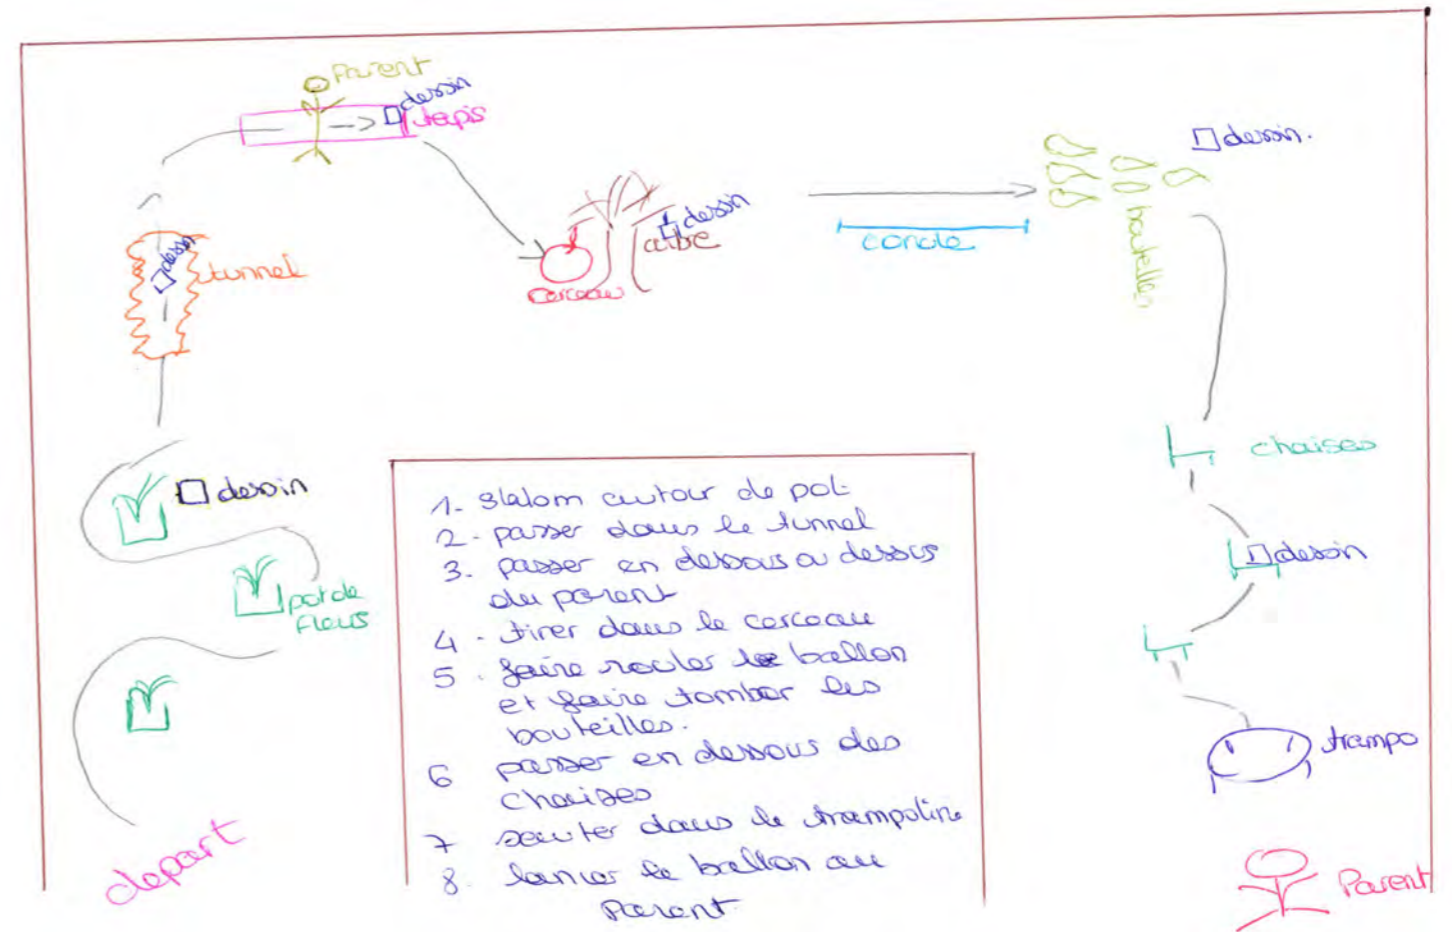 parent
dessin
tapis
dessin
tunnel
dessin
arbre
cerceau
corde
dessin.
bouteilles
chaises
dessin
trampo
Parent
dessin
pot de
fleurs
depart
1. slalom autour de pot
2. passer dans le tunnel
3. passer en dessous ou dessus
du parent
4. tirer dans le cerceau
5. faire rouler le ballon
et faire tomber les
bouteilles.
6 passer en dessous des
chaises
7 sauter dans le trampoline
8. lancer le ballon au
parent